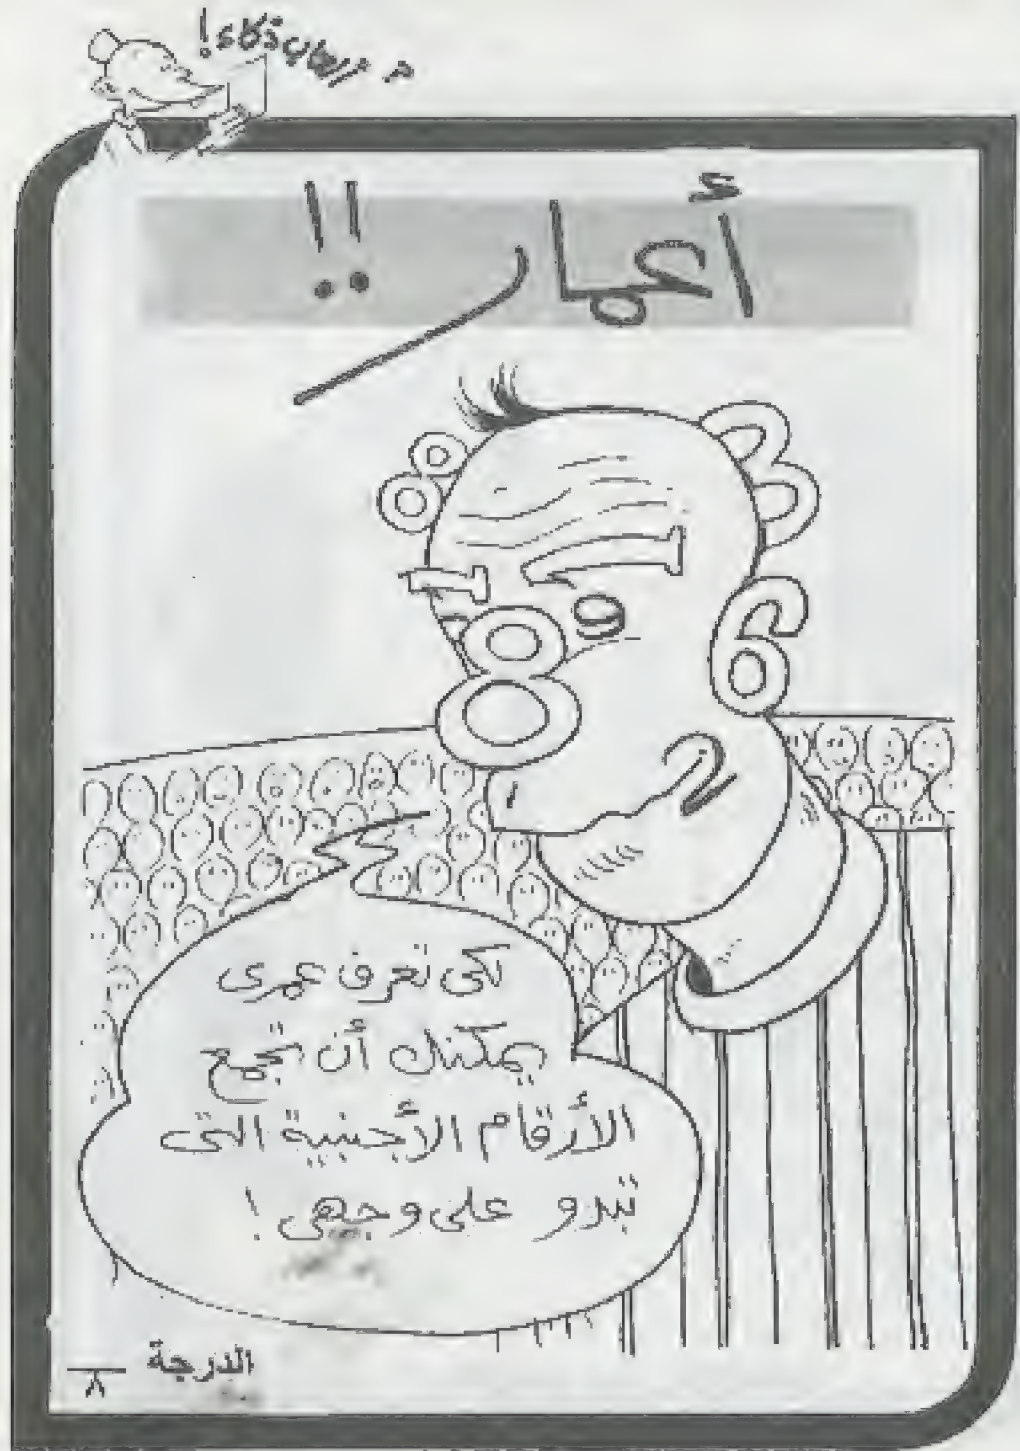 ذكاء!
أعمار !!
لكى تعرف عمرى
يمكنك أن تجمع
الأرقام الأجنبية التى
تبدو على وجهى !
الدرجة
٨